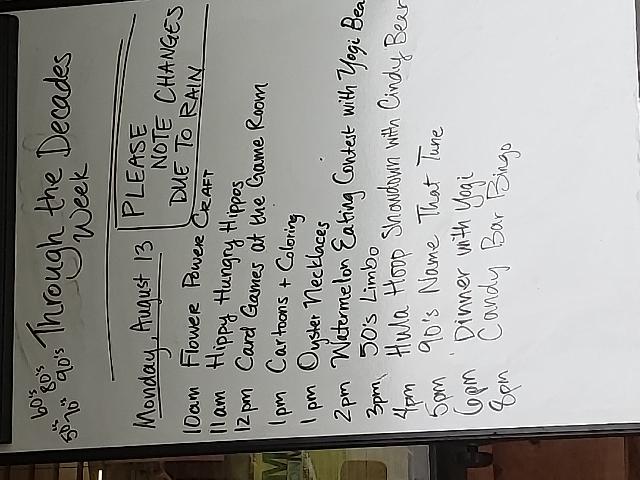 60's 80's
50's 70's 90's Through the Decades
Week
Monday, August 13
PLEASE
NOTE CHANGES
DUE TO RAIN
10am Flower Power CRAFT
11am Hippy Hungry Hippos
12pm Card Games at the Game Room
1pm Cartoons + Coloring
1pm Oyster Necklaces
2pm Watermelon Eating Contest with Yogi Bea
3pm, 50's Limbo
4pm Hula Hoop Showdown with Cindy Bear
5pm 90's Name That Tune
6pm Dinner with Yogi
8pm Candy Bar Bingo